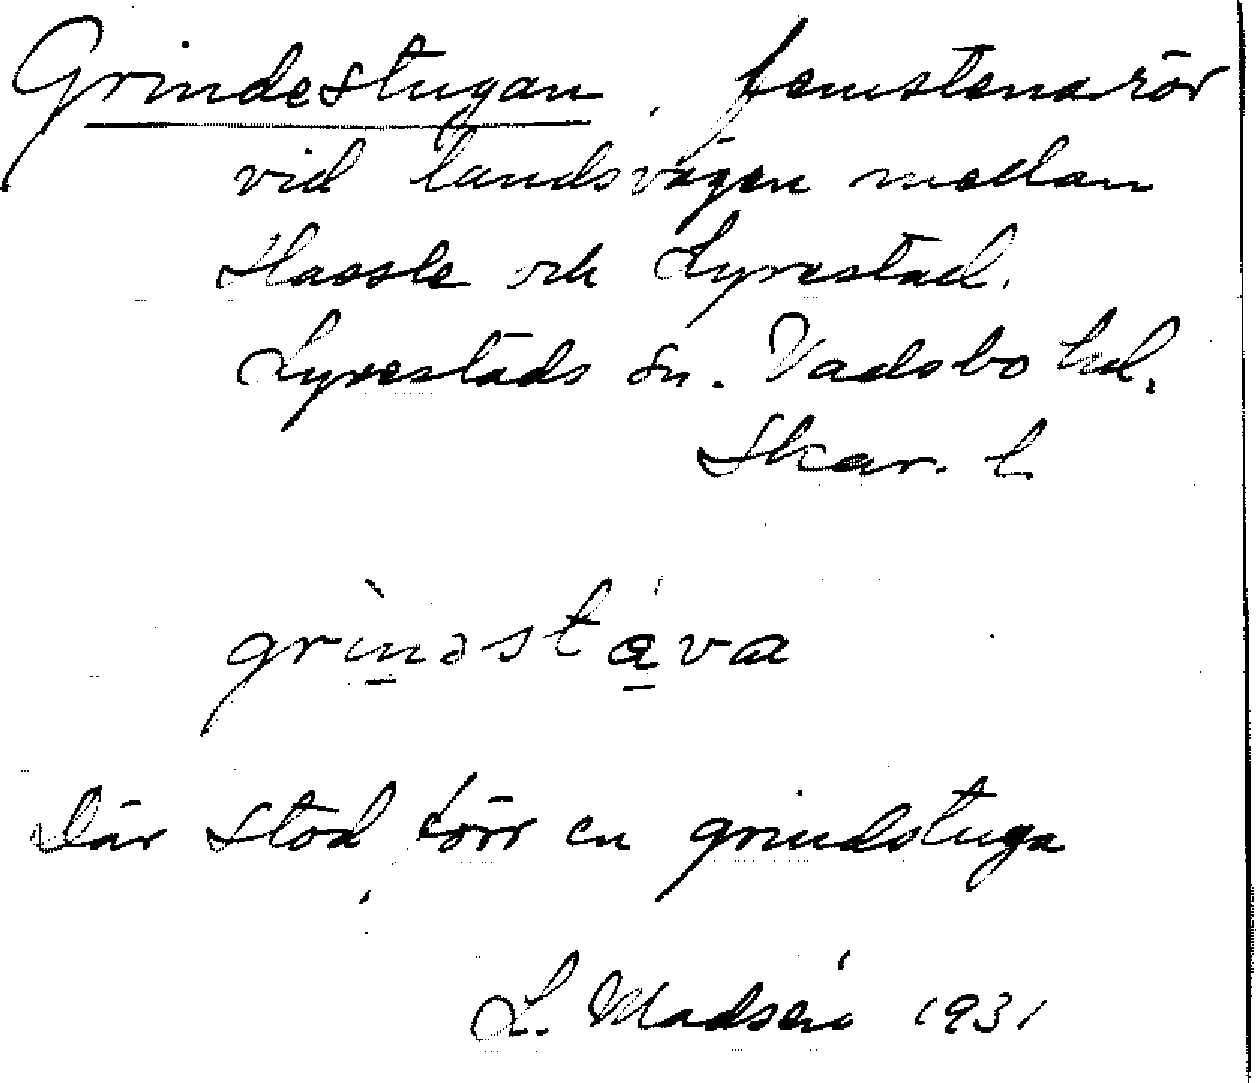 Grindestugan, femstenarör
vid landsvägen mellan
Hassle och Lyrestad.
Lyrestads sn. Vadsbo hd.
Skar. l.
grìn̠əstá̠va
Där stod förr en grindstuga
L. Madsén 1931